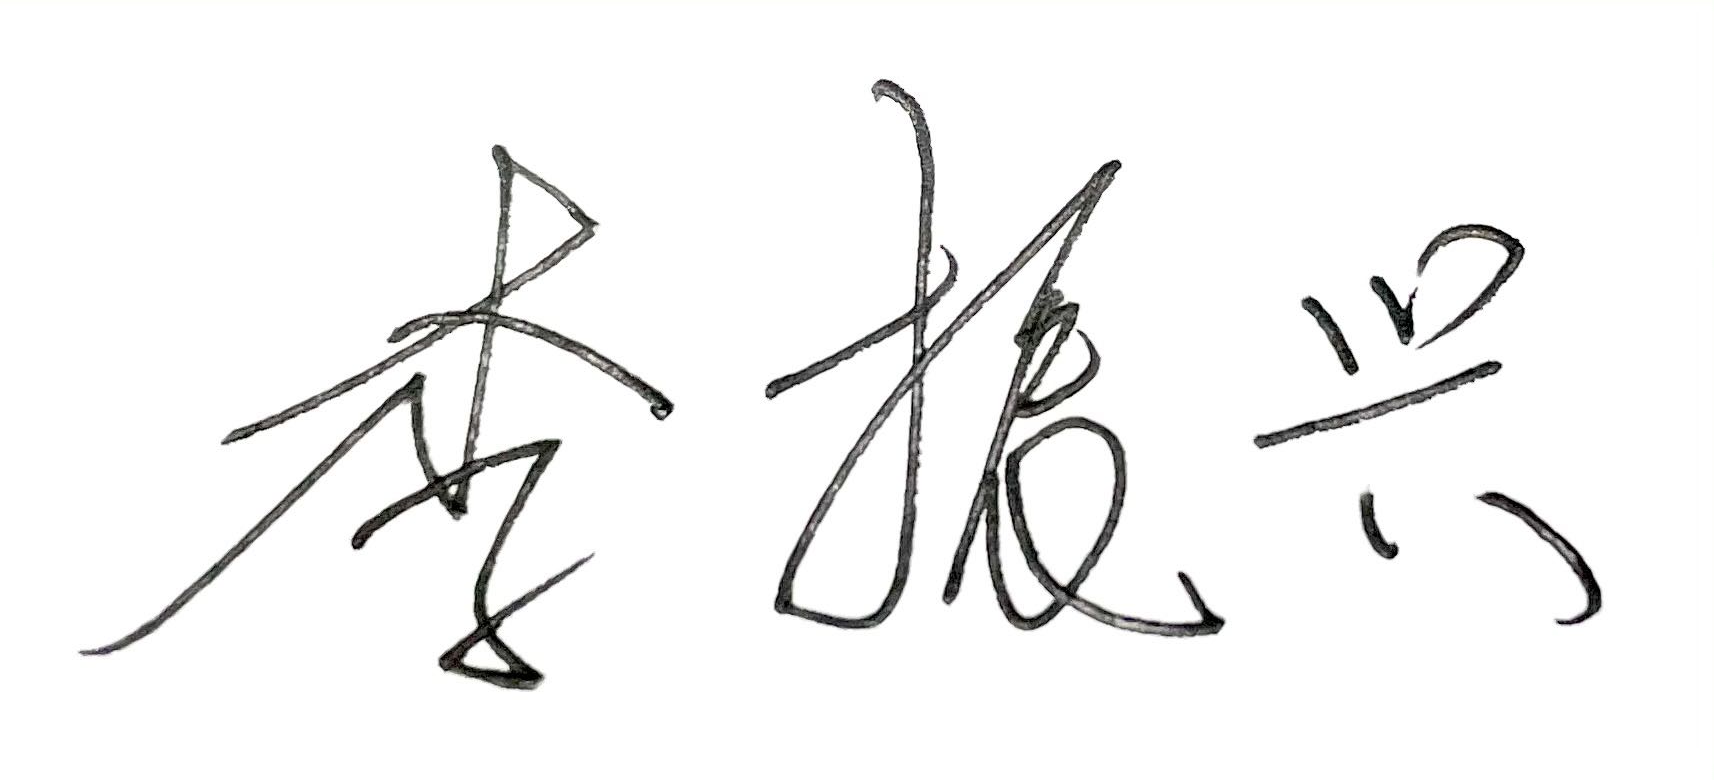 李振兴